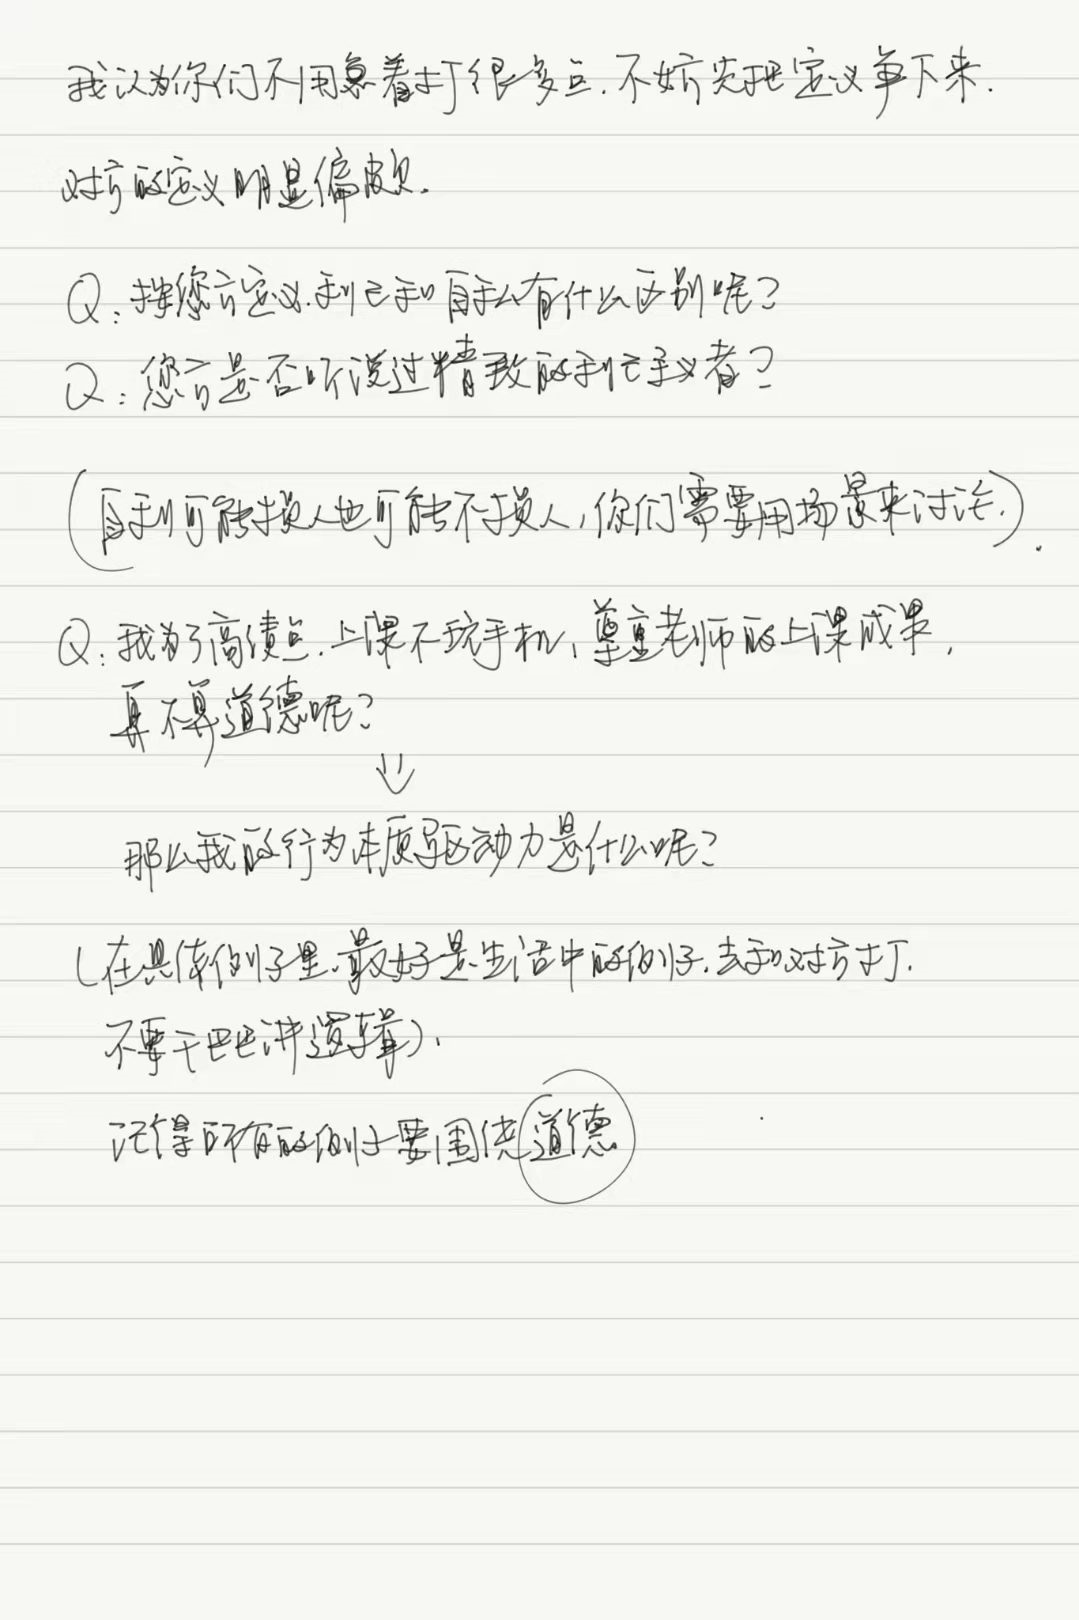 我认为你们不用急着打很多点.不妨先把定义争下来.
对方的定义明显偏颇.
Q:按您方定义.利己和自私有什么区别呢?
Q:您方是否听说过精致的利己主义者?
(自利可能损人也可能不损人,你们需要用场景来讨论.).
Q:我为了高绩点.上课不玩手机,尊重老师的上课成果,
算不算道德呢?
⇓
那么我的行为本质驱动力是什么呢?
(在具体例子里.最好是生活中的例子.去和对方打.
不要干巴巴讲逻辑).
记得所有的例子要围绕道德